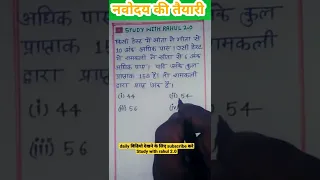 नवोदय की तैयारी
STUDY WITH RAHUL 2.0
किसी टेस्ट में सीता ने गीता से
10 अंक अधिक पाए। उसी टेस्ट
में रामकली ने सीता से 6 अंक
अधिक पाए। यदि उनके कुल
प्राप्तांक 158 है। तो रामकली
द्वारा प्राप्त अंक है।
(i) 44
(ii) 54
(iii) 56
daily विडियो देखने के लिए subscribe करे
Study with rahul 2.0
अधिक पाए। यदि उनके कुल
प्राप्तांक
द्वारा प्राप्त
(i) 44
(iii) 56